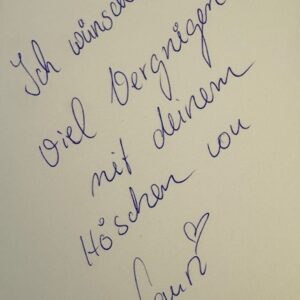 Ich wünsch
viel Vergnügen
mit deinem
Höschen von